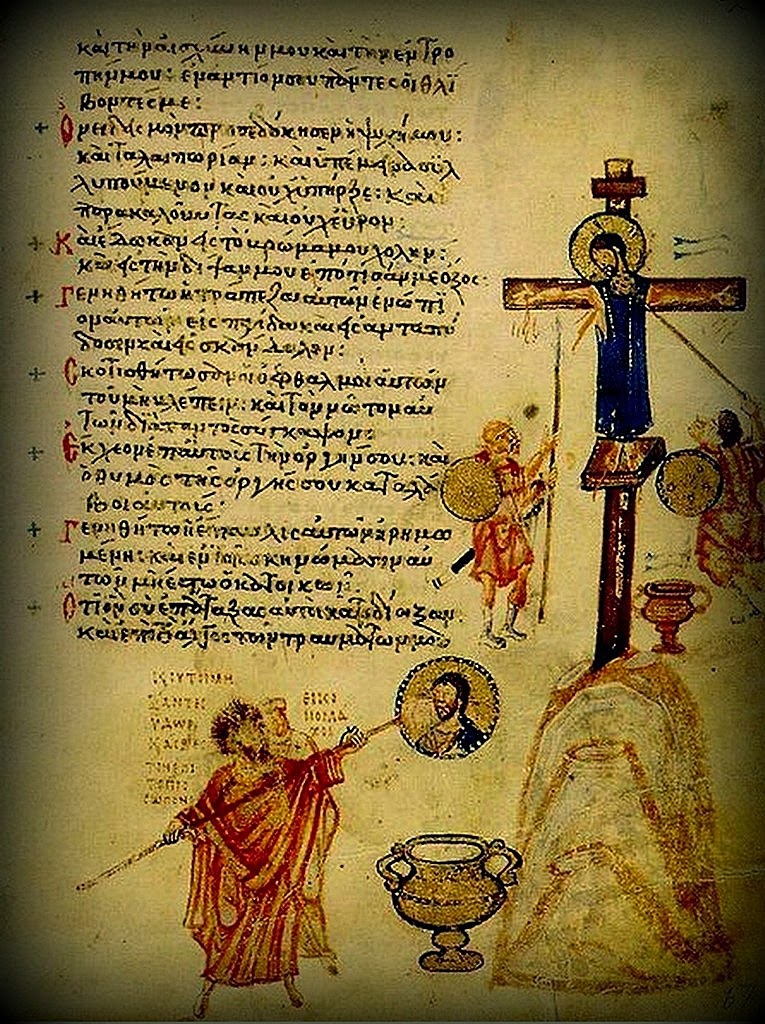 καὶ τὴν αἰσχύνην μου καὶ τὴν ἐντρο
πήν μου: ἐναντίον σου πάντες οἱ θλί
βοντές με:
Ὀνειδισμὸν προσεδόκησεν ἡ ψυχή μου:
καὶ ταλαιπωρίαν: καὶ ὑπέμεινα συλ
λυπούμενον καὶ οὐχ ὑπῆρξε: καὶ
παρακαλοῦντας καὶ οὐχ εὗρον:
Καὶ ἔδωκαν εἰς τὸ βρῶμά μου χολήν:
καὶ εἰς τὴν δίψαν μου ἐπότισάν με ὄξος:
Γενηθήτω ἡ τράπεζα αὐτῶν ἐνώπι
ον αὐτῶν εἰς παγίδα καὶ εἰς ἀνταπό
δοσιν καὶ εἰς σκάνδαλον:
Σκοτισθήτωσαν οἱ ὀφθαλμοὶ αὐτῶν
τοῦ μὴ βλέπειν: καὶ τὸν νῶτον αὐ
τῶν διαπαντὸς σύγκαμψον:
Ἔκχεον ἐπ' αὐτοὺς τὴν ὀργήν σου: καὶ
ὁ θυμὸς τῆς ὀργῆς σου καταλά
βοι αὐτούς:
Γενηθήτω ἡ ἔπαυλις αὐτῶν ἠρημω
μένη: καὶ ἐν τοῖς σκηνώμασιν αὐ
τῶν μὴ ἔστω ὁ κατοικῶν:
Ὅτι ὃν σὺ ἐπάταξας αὐτοὶ κατεδίωξαν:
καὶ ἐπὶ τὸ ἄλγος τῶν τραυμάτων μου
ΥΔΩΡ
ΕΙΚΟ
ΝΟΜΑ
ΧΟΙ